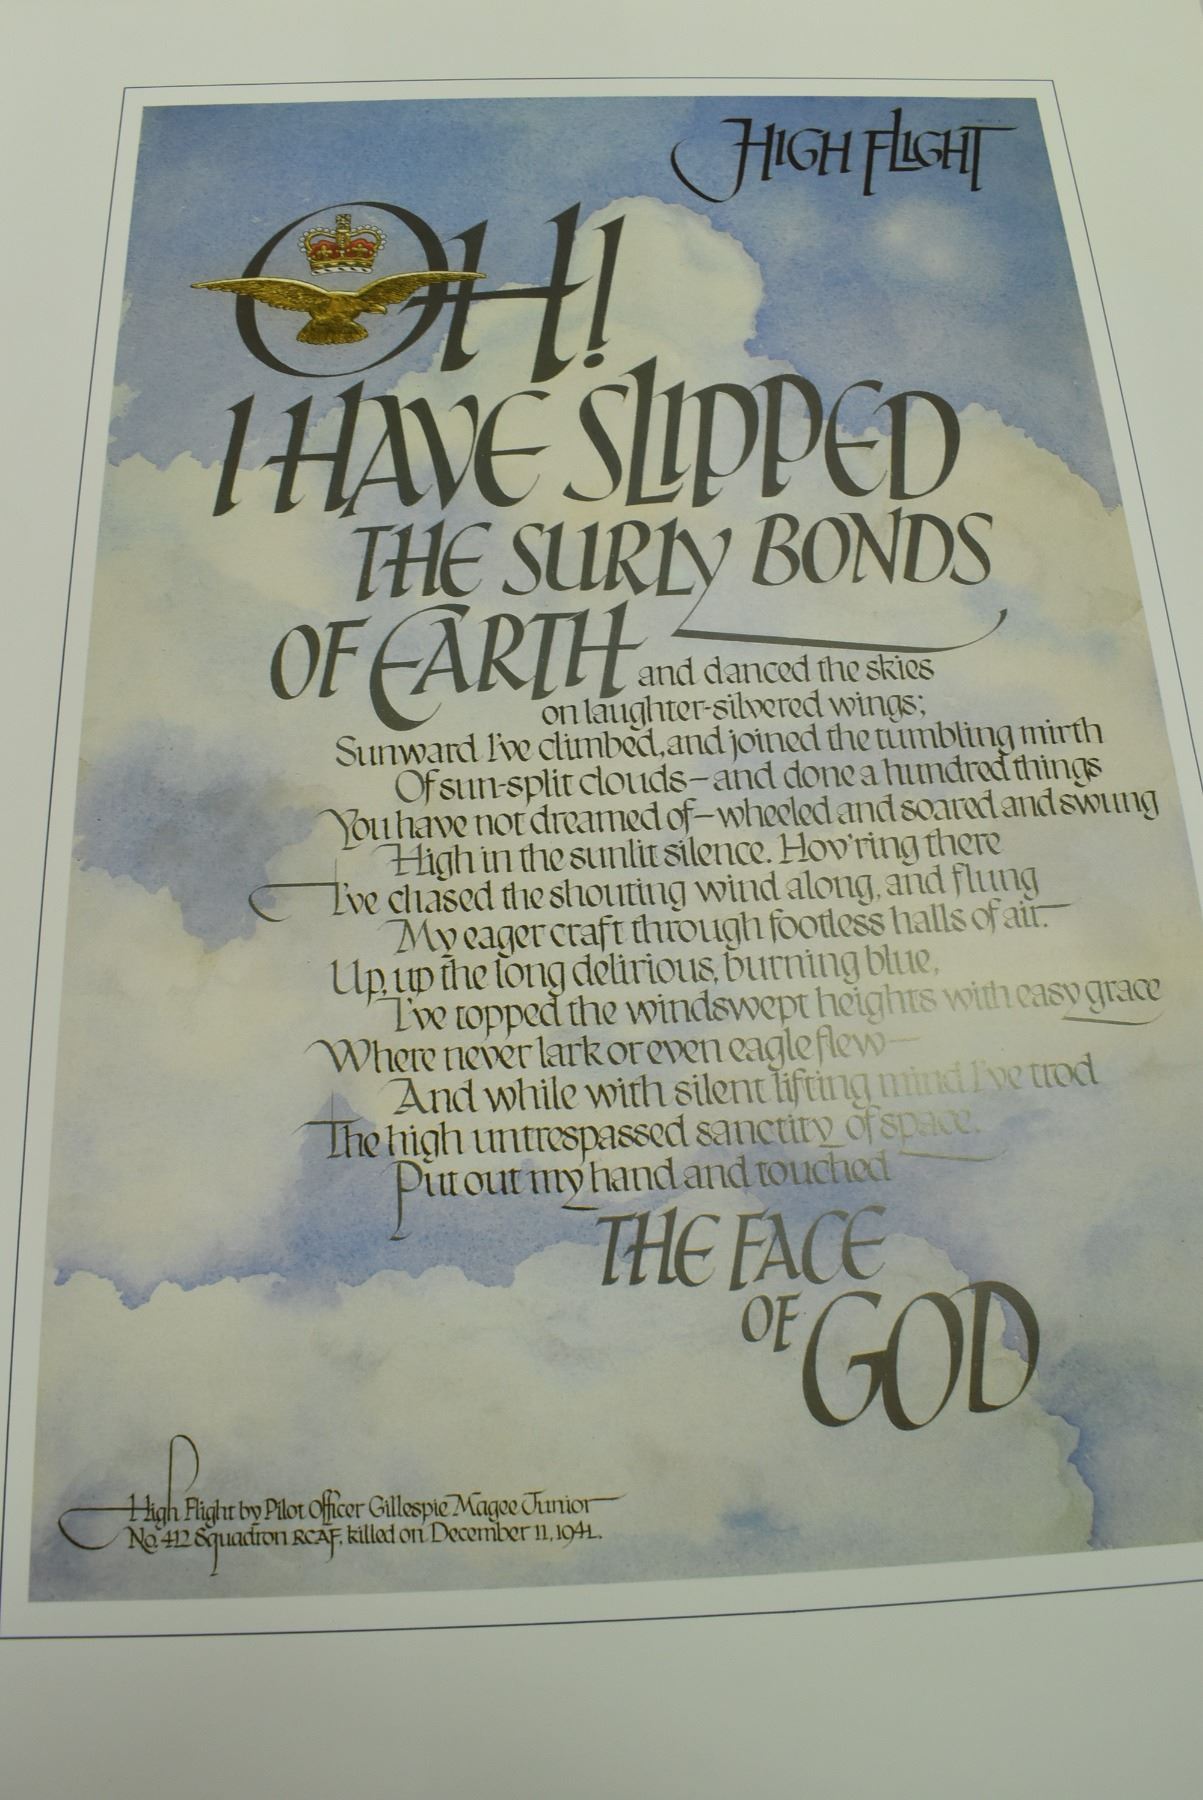 HIGH FLIGHT
OH!
I HAVE SLIPPED
THE SURLY BONDS
OF EARTH and danced the skies
on laughter-silvered wings;
Sunward I've climbed, and joined the tumbling mirth
Of sun-split clouds – and done a hundred things
You have not dreamed of – wheeled and soared and swung
High in the sunlit silence. Hov'ring there
I've chased the shouting wind along, and flung
My eager craft through footless halls of air.
Up, up the long delirious, burning blue,
I've topped the windswept heights with easy grace
Where never lark or even eagle flew –
And while with silent lifting mind I've trod
The high untrespassed sanctity of space,
Put out my hand and touched
THE FACE
OF GOD
High Flight by Pilot Officer Gillespie Magee Junior
No. 412 Squadron RCAF, killed on December 11, 1941.